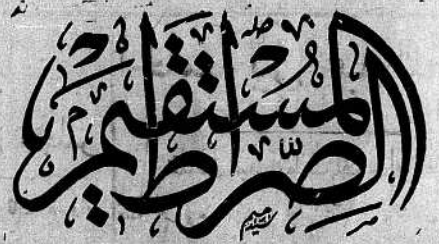 الصِّرٰطَ الْمُسْتَقِيْمَ